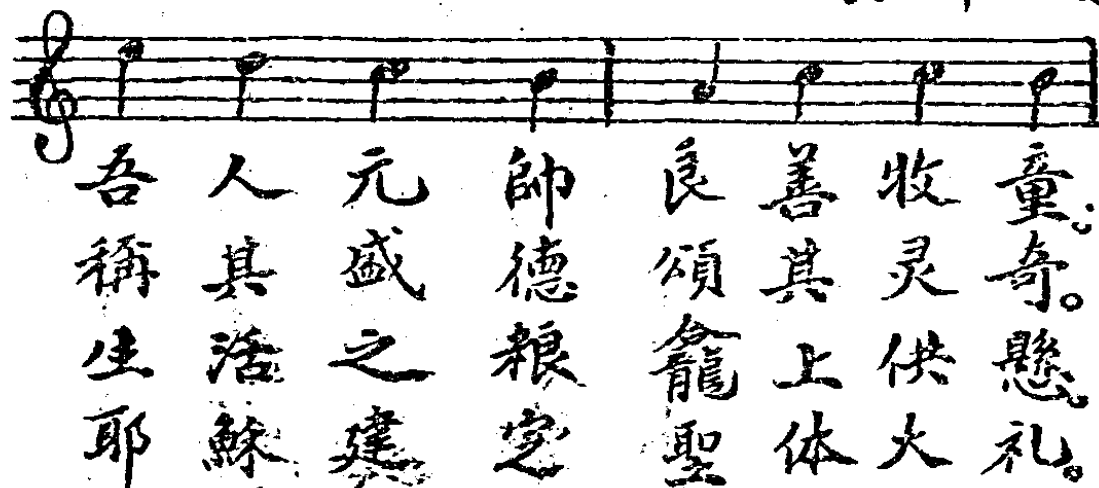 吾人元帥良善牧童。
稱其盛德頌其灵奇。
生活之粮龕上供懸。
耶穌建定聖体大礼。